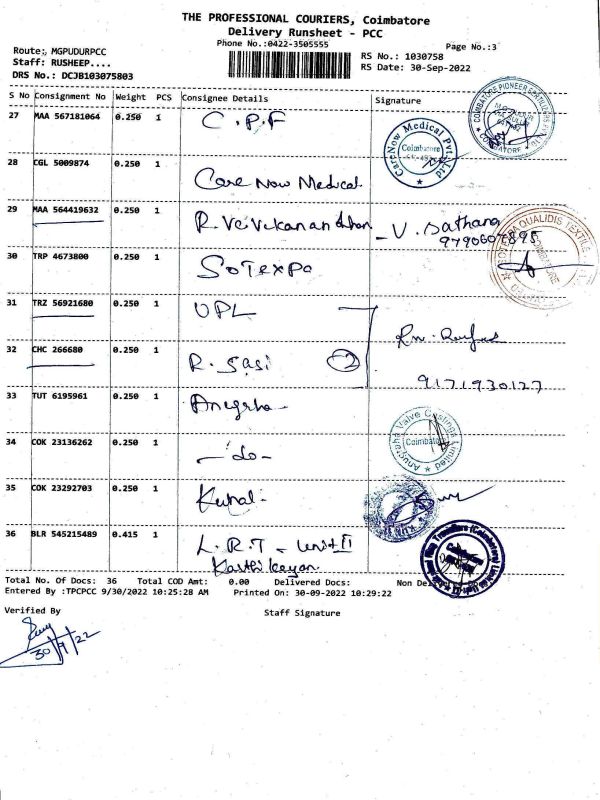 THE PROFESSIONAL COURIERS, Coimbatore
Delivery Runsheet - PCC
Phone No.:0422-3505555
Page No.:3
Route:, MGPUDURPCC
Staff: RUSHEEP....
DRS No.: DCJB103075803
RS No.: 1030758
RS Date: 30-Sep-2022
S No Consignment No Weight PCS Consignee Details Signature
27 MAA 567181064 0.250 1 C.P.F
COIMBATORE PIONEER
CareNow Medical Pvt. Ltd
Coimbatore
28 CGL 5009874 0.250 1 Care Now Medical
29 MAA 564419632 0.250 1 R. Vivekanandhan - V. Sathana
9790607895
30 TRP 4673800 0.250 1 SOTEXPA
QUALIDIS TEXTILE
COIMBATORE
31 TRZ 56921680 0.250 1 UPL
32 CHC 266680 0.250 1 R. Sasi 2
9171930127
33 TUT 6195961 0.250 1 Anugrha
34 COK 23136262 0.250 1 - do -
Anugraha Valve Castings Limited
Coimbatore
35 COK 23292703 0.250 1 Kunal
36 BLR 545215489 0.415 1 L.R.T - unit II
Karthikeyan
Total No. Of Docs: 36 Total COD Amt: 0.00 Delivered Docs: Non De
Entered By :TPCPCC 9/30/2022 10:25:28 AM Printed On: 30-09-2022 10:29:22
Verified By
Staff Signature
30/9/22